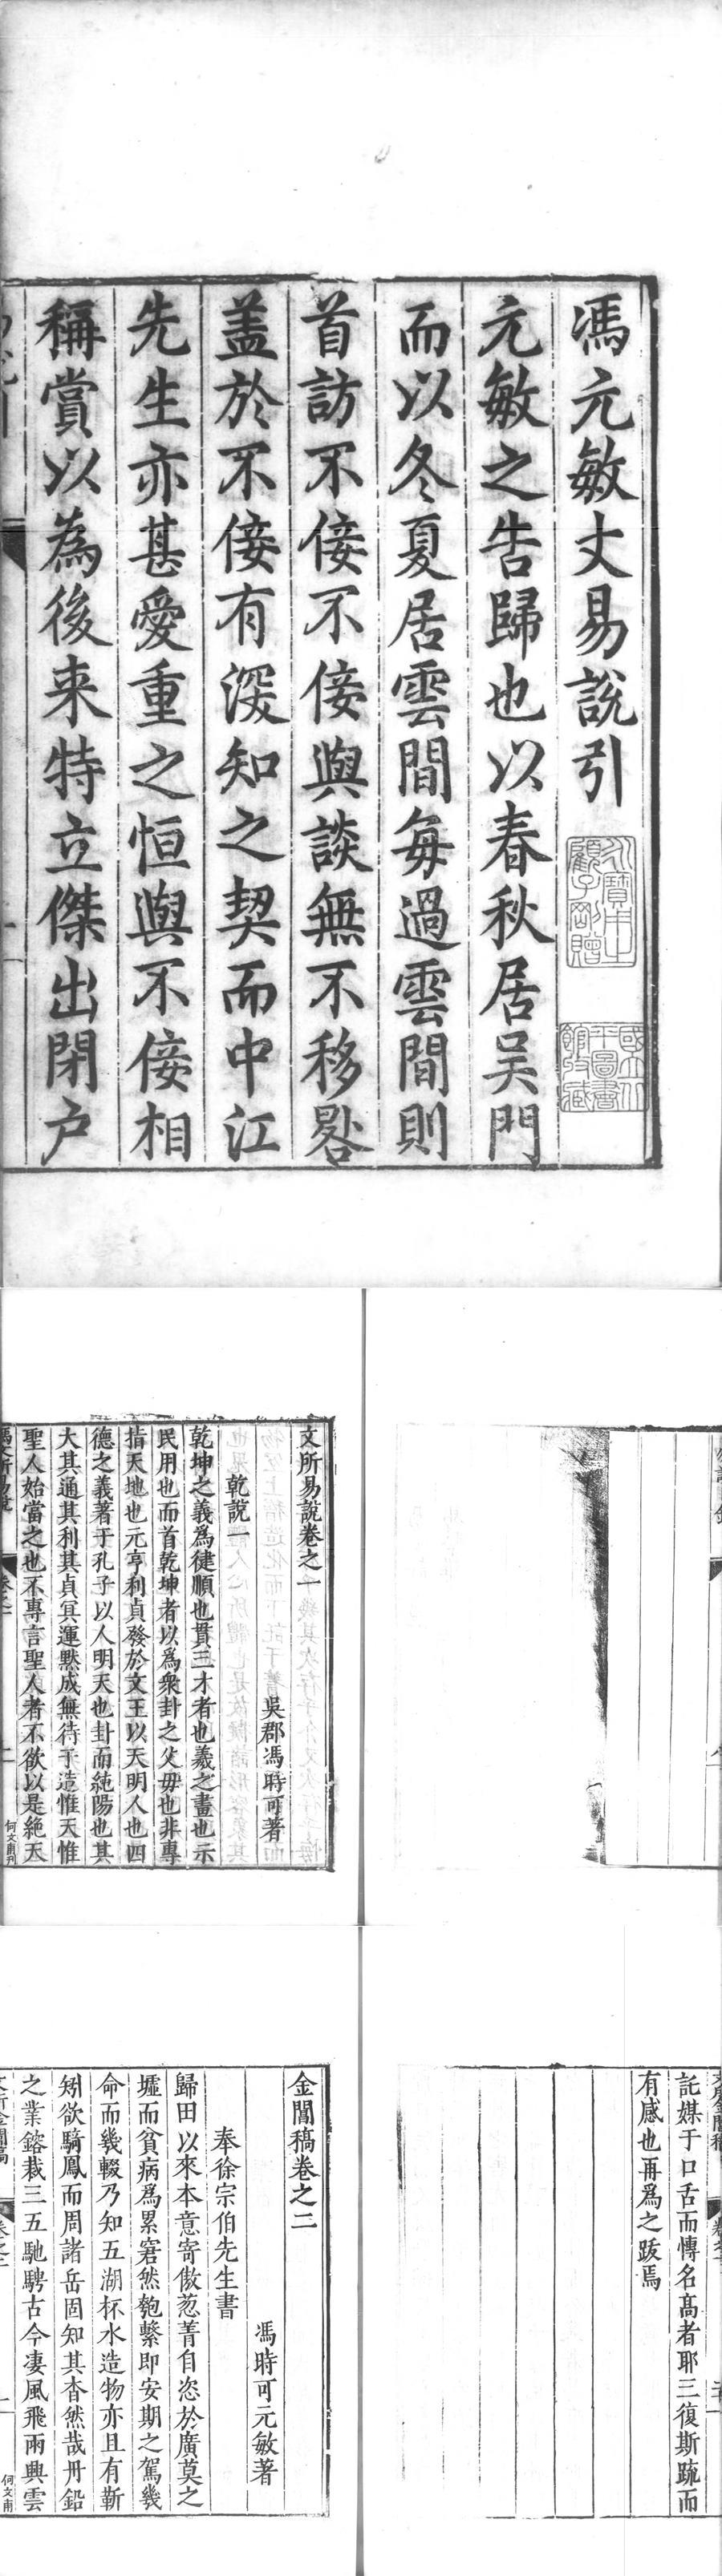 馮元敏丈易說引
元敏之告歸也以春秋居吴門
而以冬夏居雲間每過雲間則
首訪不佞不佞與談無不移晷
盖於不佞有深知之契而中江
先生亦甚愛重之恒與不佞相
稱賞以為後来特立傑出閉户
顧子剛贈
國立北
平圖書
館收藏
文所易說卷之一
吳郡馮時可著
乾說一
乾坤之義爲健順也貫三才者也羲之畫也示
民用也而首乾坤者以爲衆卦之父毋也非專
指天地也元亨利貞發於文王以天明人也四
德之義著于孔子以人明天也卦而純陽也其
大其通其利其貞冥運默成無待于造惟天惟
聖人始當之也不專言聖人者不欲以是絶天
馮文所易說
卷之一
一
何文甫刊
託媒于口舌而愽名髙者耶三復斯䟽而
有感也再爲之䟦焉
金閶稿卷之二
馮時可元敏著
奉徐宗伯先生書
歸田以來本意寄傲葱菁自恣於廣莫之
墟而貧病爲累窘然匏繫即安期之駕幾
命而幾輟乃知五湖杯水造物亦且有靳
矧欲騎鳳而周諸岳固知其杳然哉丹鉛
之業鎔裁三五馳騁古今凄風飛雨興雲
文所金閶稿
卷之二
一
何文甫